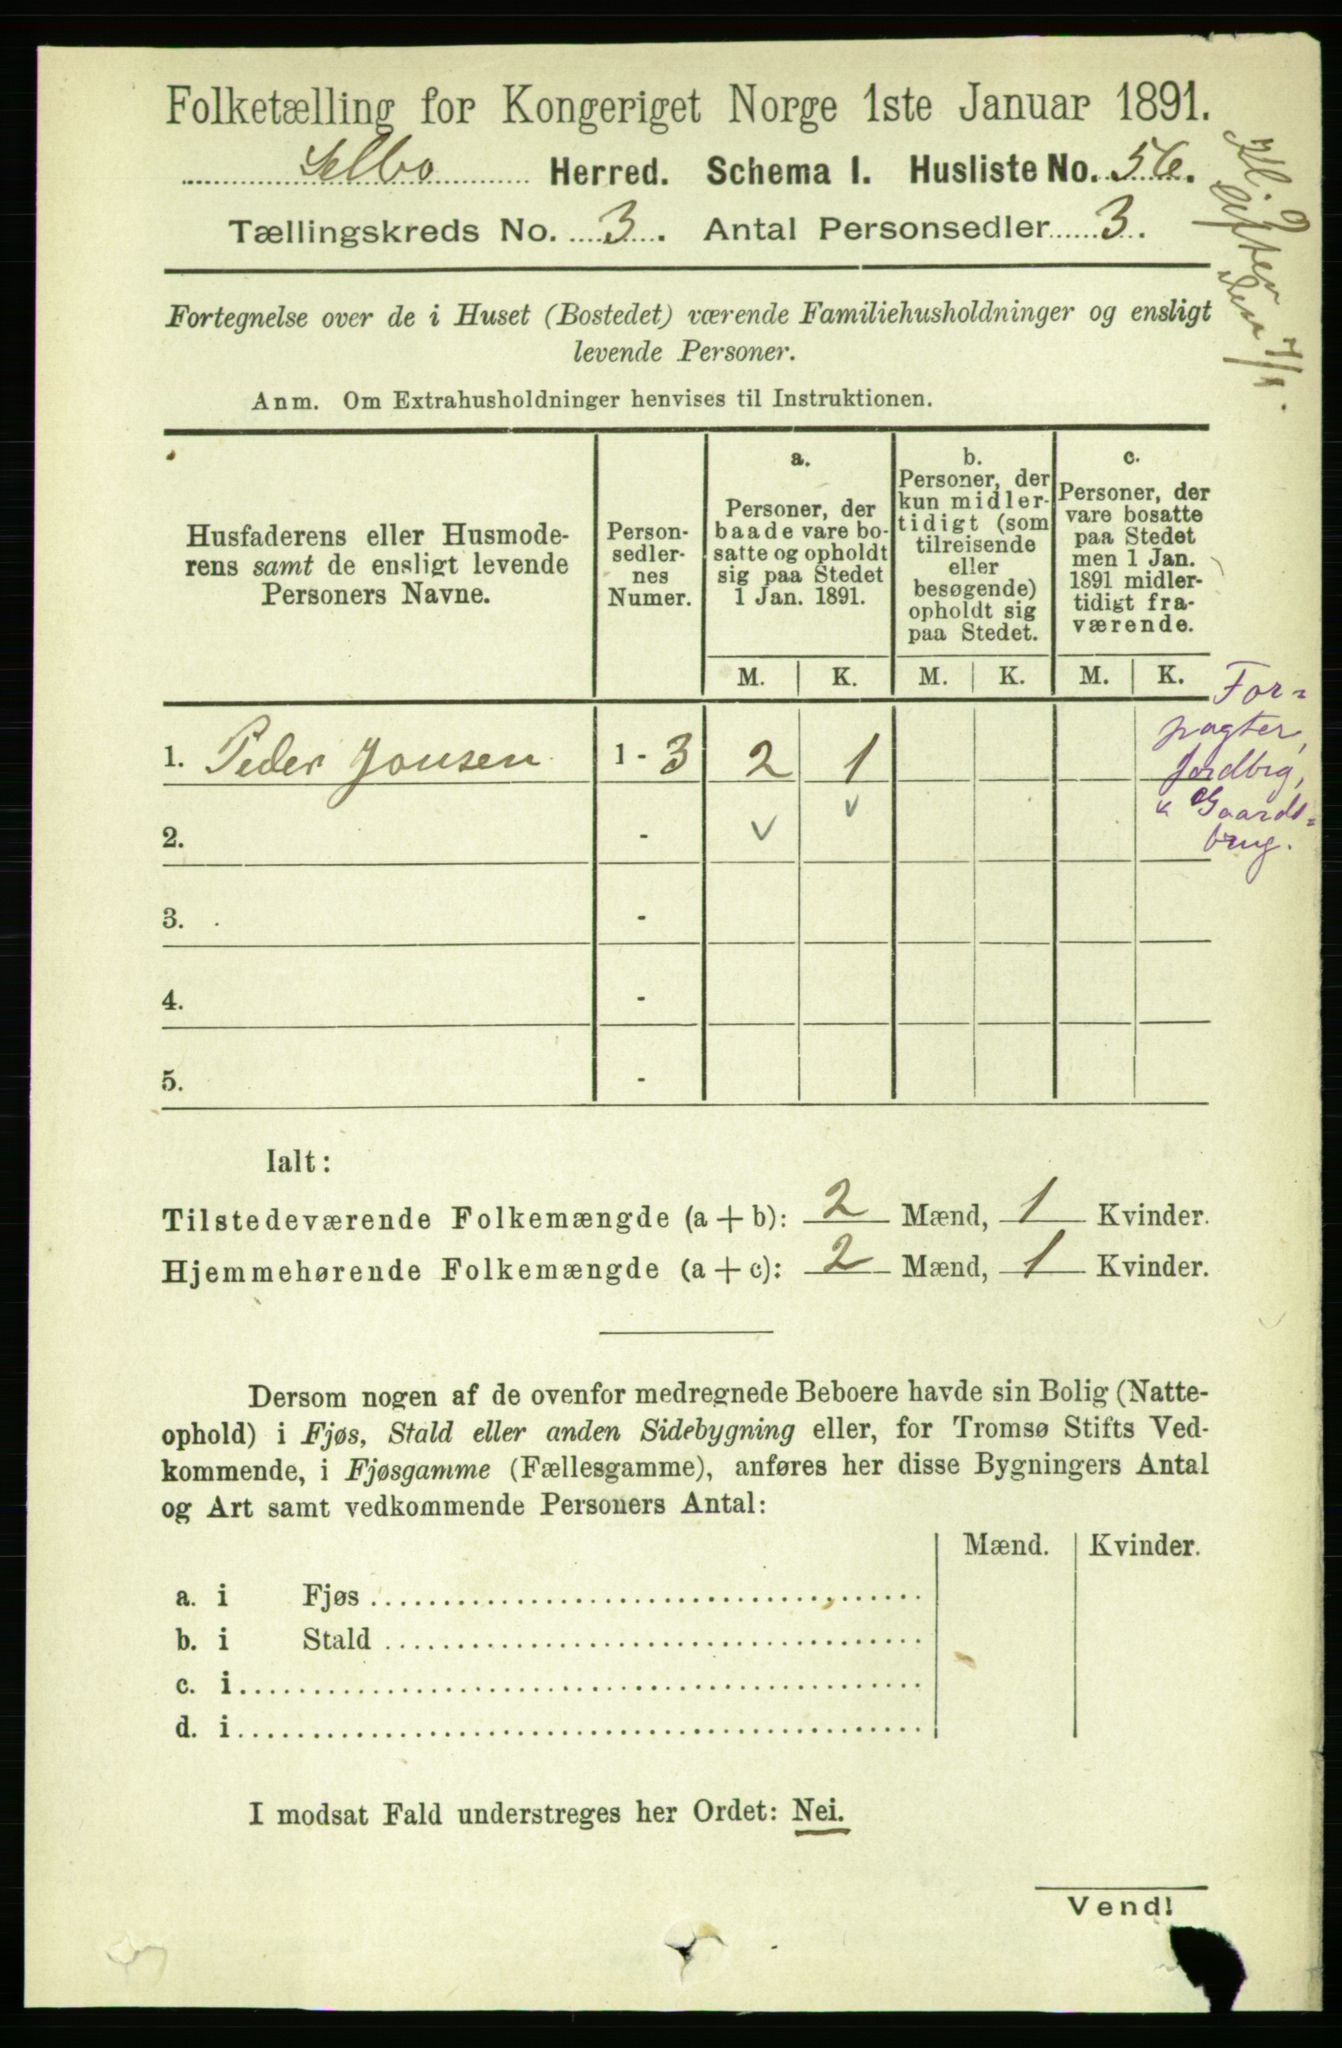 Folketælling for Kongeriget Norge 1ste Januar 1891.
Selbo Herred. Schema I. Husliste No. 56.
Tællingskreds No. 3. Antal Personsedler 3.
Kl. 9
Efter
den 7/1.
Fortegnelse over de i Huset (Bostedet) værende Familiehusholdninger og ensligt
levende Personer.
Anm. Om Extrahusholdninger henvises til Instruktionen.
Husfaderens eller Husmode-
rens samt de ensligt levende
Personers Navne.
Person-
sedler-
nes
Numer.
a.
Personer, der
baade vare bo-
satte og opholdt
sig paa Stedet
1 Jan. 1891.
b.
Personer, der
kun midler-
tidigt (som
tilreisende
eller
besøgende)
opholdt sig
paa Stedet.
c.
Personer, der
vare bosatte
paa Stedet
men 1 Jan.
1891 midler-
tidigt fra-
værende.
M. K. M. K. M. K.
1. Peder Jonsen 1 - 3 2 1
For-
pagter,
jordbrg,
Gaards-
brug.
2. -
3. -
4. -
5. -
Ialt:
Tilstedeværende Folkemængde (a + b): 2 Mænd, 1 Kvinder.
Hjemmehørende Folkemængde (a + c): 2 Mænd, 1 Kvinder.
Dersom nogen af de ovenfor medregnede Beboere havde sin Bolig (Natte-
ophold) i Fjøs, Stald eller anden Sidebygning eller, for Tromsø Stifts Ved-
kommende, i Fjøsgamme (Fællesgamme), anføres her disse Bygningers Antal
og Art samt vedkommende Personers Antal:
Mænd. Kvinder.
a. i Fjøs
b. i Stald
c. i
d. i
I modsat Fald understreges her Ordet: Nei.
Vend!